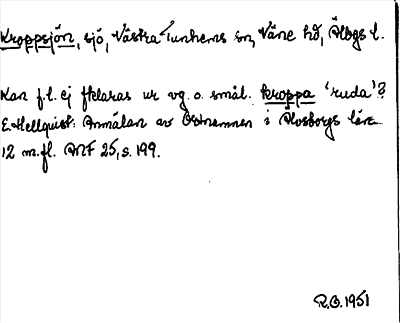 Kroppsjön, sjö, Västra Tunhems sn, Väne hd, Älvsbgs l.
Kan f.l. ej förklaras ur vg. o. smål. kroppa 'ruda'?
E. Hellquist: Anmälan av Ortnamnen i Älvsborgs län
12 m.fl. ANF 25, s. 199.
R.O. 1951